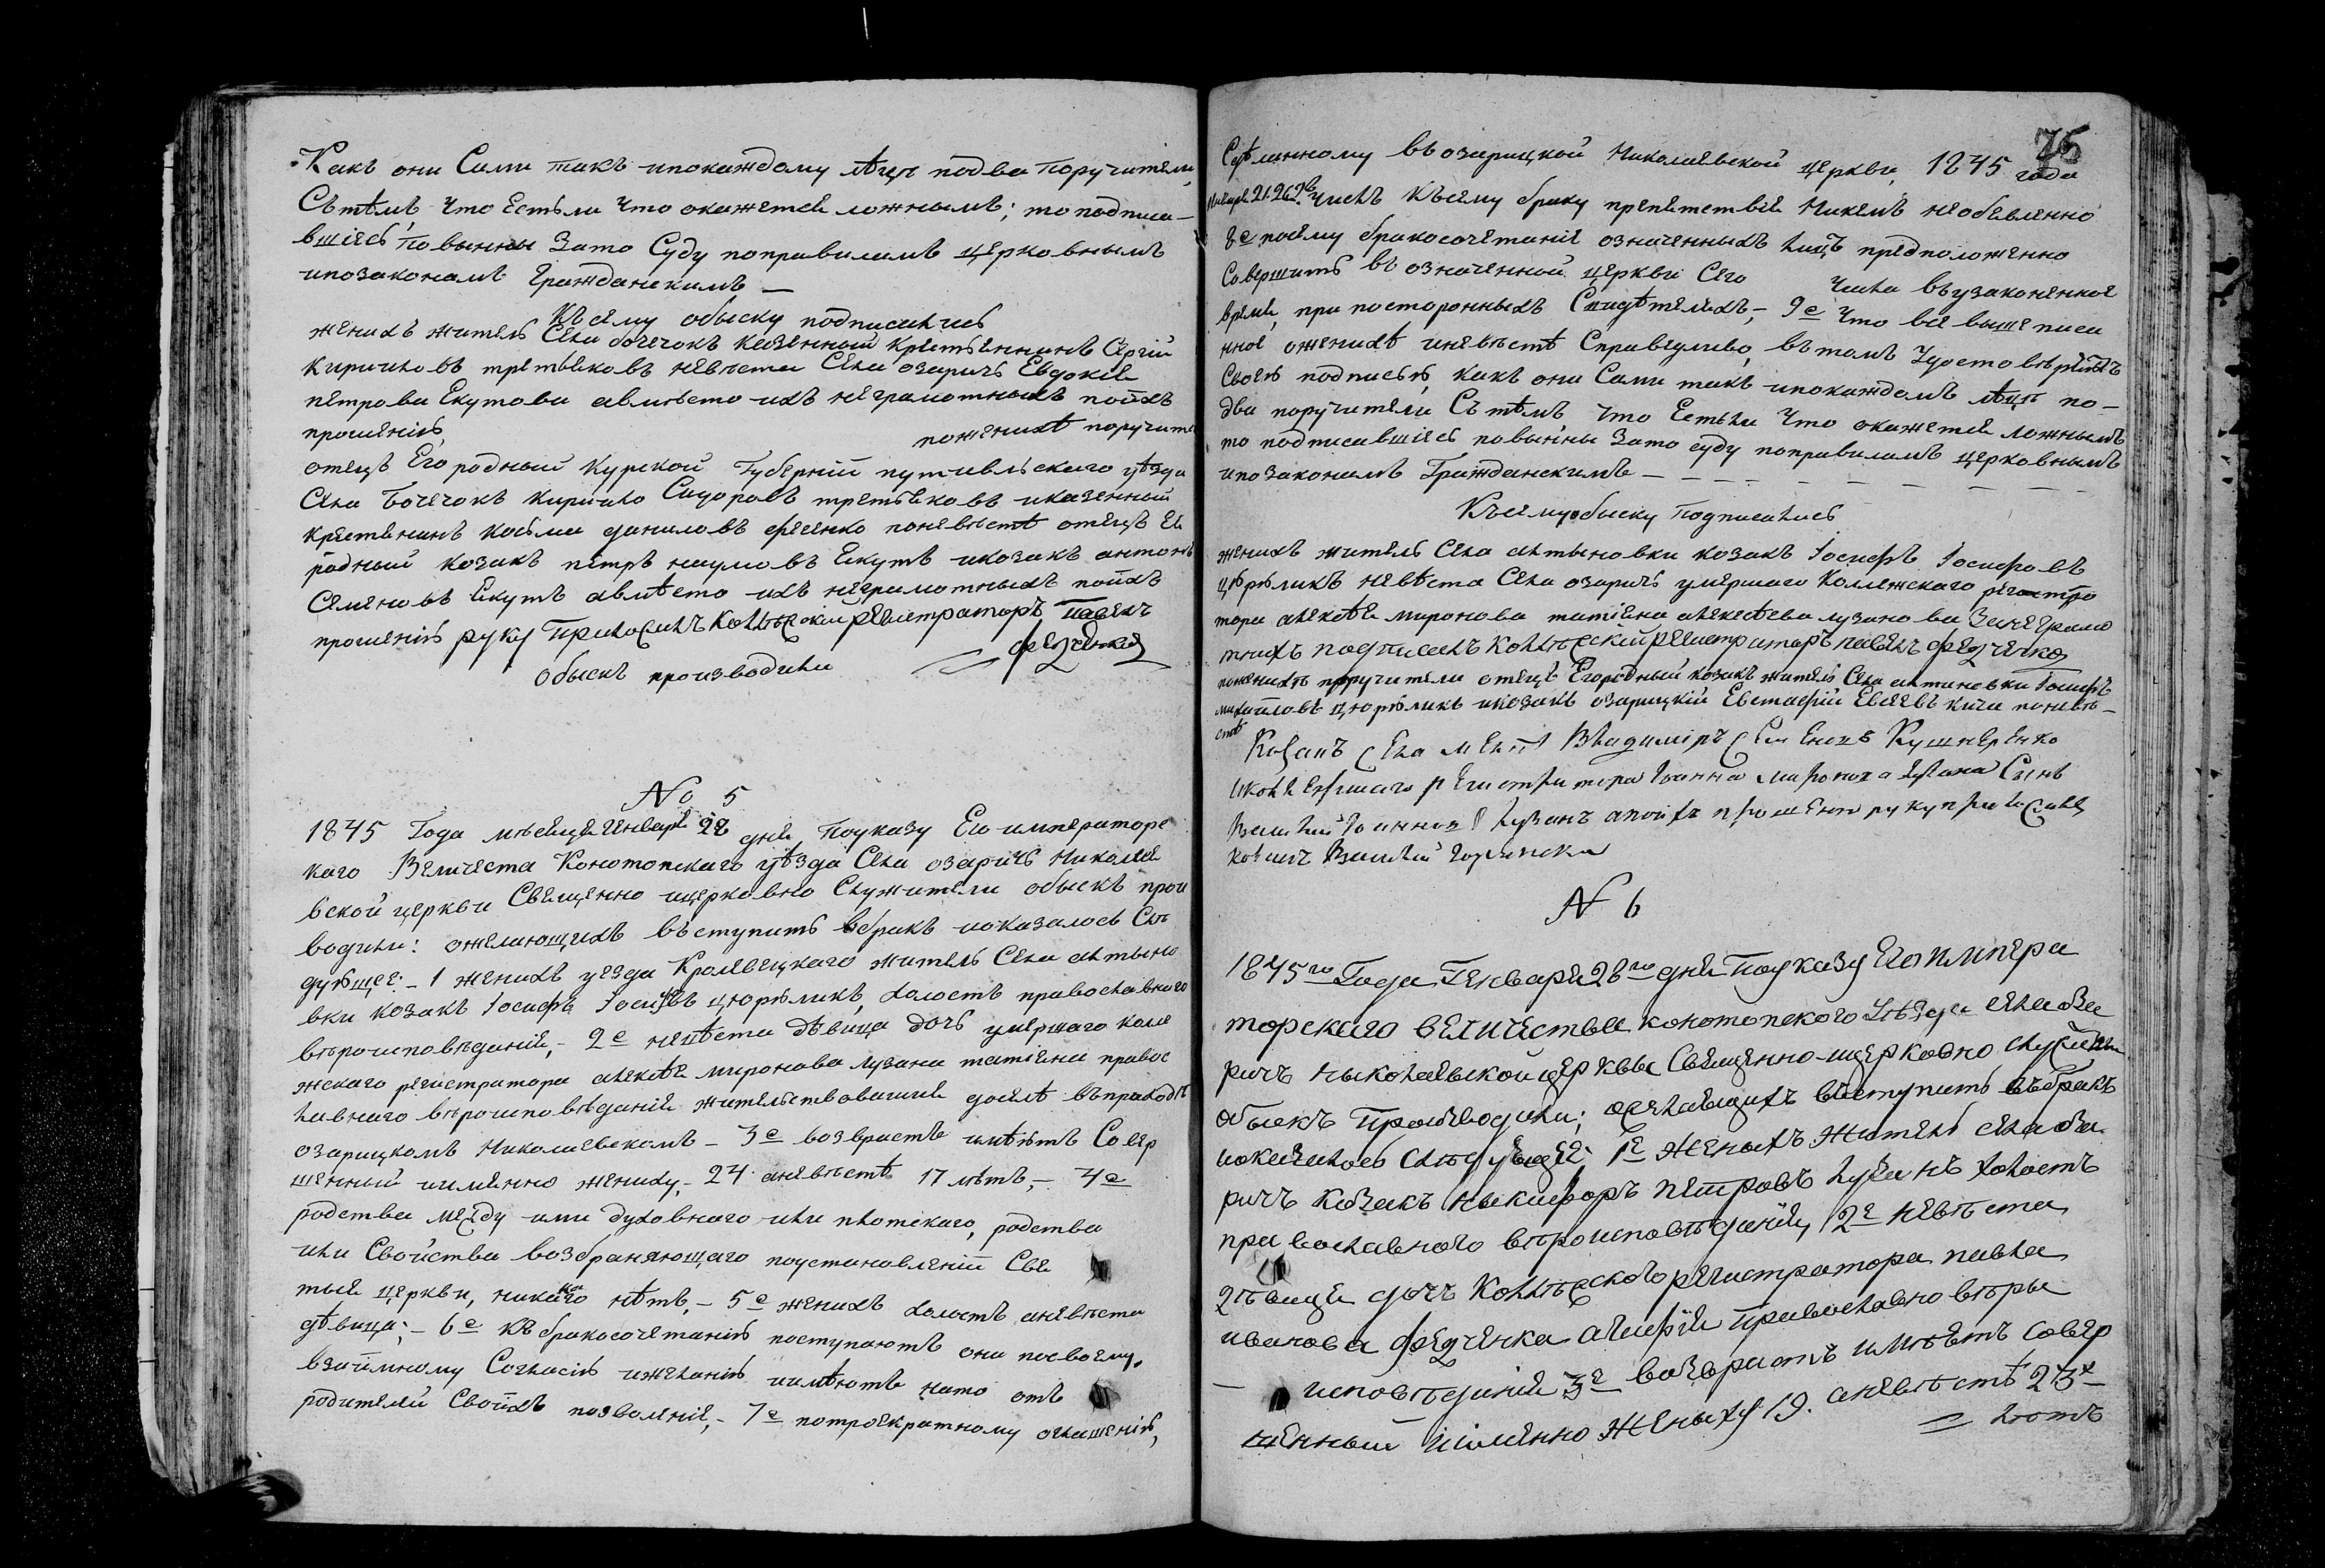 Какъ они Сами такъ ипокаждому лѣцѣ подва поручители,
Сътѣмъ что Естьли что окажется ложнымъ; то подписа-
вшіеся, повынны Зато Суду поправиламъ церковнымъ
ипозаконамъ гражданскимъ —
Къ сему обыску подписались
женихъ житель Села бочечокъ казенный крестьянинъ Сергій
Кириловъ третьяковъ невѣста Села озаричъ Евдокія
петрова Екутова авмѣсто ихъ неграмотныхъ поихъ
прошенію, поженихѣ поручите
отецъ Его родный Курской Губерніи путивльскаго уѣзда
Села Бочечокъ Кирило Сидоровъ третьяковъ иказенный
крестянинъ косьма даниловъ фесенко поневѣстѣ отецъ Ея
родный козакъ петръ наумовъ Екутъ икозакъ антонъ
Семеновъ Екутъ авмѣсто ихъ неграмотныхъ поихъ
прошенію руку Приложилъ Коллѣжскій регистраторъ Павелъ
Федченко
Обыскъ производили
№ 5
1845 Года мѣсяця Января 28 дня Поуказу Его императорс
каго Величества Конотопскаго уѣзда Села озаричъ Николае
вской церкви Священно ицерковно Служители обыскъ прои
водили: ожелающихъ въступить вбракъ иоказалось Слѣ
дующее: – 1 женихъ уезда Кролевецкаго житель Села алтыно
вки козакъ Іосифъ Іосифовъ цюрюликъ, холостъ православнаго
вѣроисповѣданія, – 2е невѣста дѣвица дочь умершаго коле
жскаго регистратора алексѣя миронова лузана татіяна правос
лавнаго вѣроисповѣданія жительствовавшия доселѣ въприходѣ
озарицкомъ Николаевскомъ – 3е возврастъ имѣютъ Совер
шенный иимянно жениху, – 24 аневѣстѣ 17 лѣтъ, – 4е
родства между ими духовнаго или плотскаго, родства
или Свойства возбраняющаго поустановленіи Свя
тыя церкви, никакого нѣтъ, – 5е женихъ холостъ аневѣста
дѣвица; – 6е Къ бракосочетанію поступаютъ они посвоему,
взаимному Согласію ижеланію иимѣютъ нато отъ
родителей Своихъ позволеніе, – 7е потроекратному оглашенію,
75
Сдѣланному въ озарицкой Николаевской церкви, 1845 года
Января 21. 26. 28. числъ Къ сему браку препятствія Никемъ необявленно
8е посему бракосочетаніе означенныхъ лицъ предположенно
Совершить въ означенной церкви Сего числа въ узаконенное
время, при посторонныхъ Свидѣтеляхъ, – 9е Что все вышеписа
нное оженихѣ иневѣстѣ Справедливо, въ томъ Удостовѣряютъ
Своею подписью, какъ они Сами такъ ипокаждомъ лѣцѣ по-
два поручители Сътѣмъ что Естьли Что окажется ложнымъ
то подписавшіесь повынны Зато суду поправиламъ церковнымъ
ипозаконамъ Гражданскимъ – – – – – – – –
Къ сему обыску Подписались
женихъ житель Села алтыновки козакъ Іосифъ Іосифовъ
цюрюликъ невѣста Села озаричъ умершаго Коллежскаго регистра
тора алексѣя миронова татіяна алексѣева лузанова Занеграмо
тныхъ подписалъ Коллѣжскій регистраторъ павелъ федченко
поженихѣ поручители отецъ Егородный козакъ житель Села алтиновки Іосифъ
михайловъ цюрюликъ икозакъ озарицкій Евстафій Евсѣевъ кича поневѣ-
стѣ
Козакъ Села Владиміръ Семеновъ Кушнеренко
регистратора Іоанна миронова лузана Сынъ
Василій Іоанновъ лузанъ апоихъ прошению руку приложилъ
козакъ Василий
№ 6
1845го Года Генваря 28го дня Поуказу Его Импера
торскаго величества конотопского Уѣзда села Оза
ричъ ныколаевской церквы Священно-ицерковно служители
обыскъ Производили; ожелающихъ вѣступить въбракъ
иоказалось слѣдующее: 1е Женыхъ Житель села Оза
ричъ козакъ ныкифоръ петровъ лузанъ холостъ
православного вѣроисповѣданія, 2е невѣста
дѣвица дочь Коллѣжского регистратора павла
иванова федченка Православно вѣры
исповѣданія 3е возврастъ имѣетъ совер
шенный иимянно Женыху 19. аневѣстѣ 23х
лѣтъ